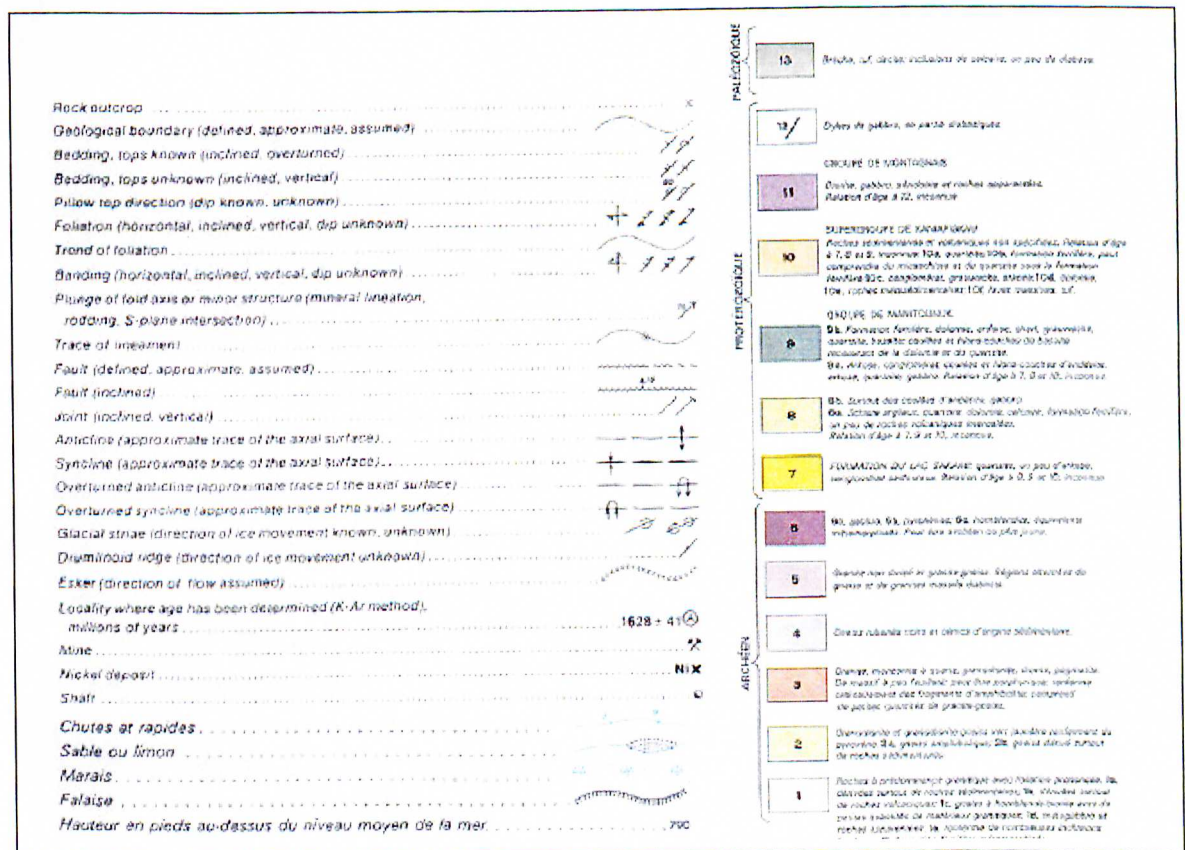 Rock outcrop
Geological boundary (defined, approximate, assumed)
Bedding, tops known (inclined, overturned)
Bedding, tops unknown (inclined, vertical)
Pillow top direction (dip known, unknown)
Foliation (horizontal, inclined, vertical, dip unknown)
Trend of foliation
Banding (horizontal, inclined, vertical, dip unknown)
Plunge of fold axis or minor structure (mineral lineation,
rodding, S-plane intersection)
Trace of lineament
Fault (defined, approximate, assumed)
Fault (inclined)
Joint (inclined, vertical)
Anticline (approximate trace of the axial surface)
Syncline (approximate trace of the axial surface)
Overturned anticline (approximate trace of the axial surface)
Overturned syncline (approximate trace of the axial surface)
Glacial striae (direction of ice movement known, unknown)
Drumlinoid ridge (direction of ice movement unknown)
Esker (direction of flow assumed)
Locality where age has been determined (K-Ar method),
millions of years 1628 ± 41 A
Mine
Nickel deposit Ni X
Shaft
Chutes et rapides
Sable ou limon
Marais
Falaise
Hauteur en pieds au-dessus du niveau moyen de la mer 790
PALÉOZOÏQUE
13 Brèche, tuf, inclusions de un peu de diabase.
PROTÉROZOÏQUE
12 Dykes de gabbro, en partie diabasiques.
GROUPE DE MONTAGNAIS
11 gabbro, et roches apparentées.
Relation d'âge à 12, inconnue
SUPERGROUPE DE KANIAPISKAU
10 Roches sédimentaires et volcaniques non spécifiées. Relation d'âge
à 7, 8 et 9, inconnue 10a, quartzite 10b, formation ferrifère, peut
comprendre du et du quartzite sous la formation
ferrifère 10c, conglomérat, grauwacke, 10d, dolomie,
10e, roches métasédimentaires 10f, laves massives, tuf.
GROUPE DE MANITOUNUK
9 9b. Formation ferrifère, dolomie, ardoise, chert, grauwacke,
quartzite, basalte; coulées et filons-couches de basalte
de la dolomie et du quartzite.
9a. Arkose, conglomérat, coulées et filons-couches d'andésite,
quartzite, gabbro. Relation d'âge à 7, 8 et 10, inconnue
8 8b. Surtout des coulées d'andésite, gabbro
8a. Schiste argileux, quartzite, dolomie, calcaire, formation ferrifère,
un peu de roches volcaniques intercalées.
Relation d'âge à 7, 9 et 10, inconnue.
7 FORMATION DU LAC SAKAMI: quartzite, un peu d'arkose,
conglomérat Relation d'âge à 8, 9 et 10, inconnue
ARCHÉEN
6 6a, gabbro, 6b, pyroxénite, 6c, hornblendite, équivalents
métamorphisés. Peut être archéen ou plus jeune.
5 Granite non divisé et granite-gneiss. Régions de
gneiss et de granites massifs
4 Gneiss rubanés noirs et blancs d'origine sédimentaire.
3 Granite, monzonite à quartz, granodiorite, pegmatite.
De massif à peu feuilleté; peut être porphyrique; renferme
des fragments d'amphibolite; comprend
de petites quantités de granite-gneiss.
2 Granodiorite et granodiorite gneiss vert jaunâtre renfermant du
pyroxène 2a, gneiss 2b, gneiss dérivé surtout
de roches sédimentaires.
1 Roches à prédominance granitique avec foliation prononcée, 1a,
dérivées surtout de roches sédimentaires, 1b, dérivées surtout
de roches volcaniques; 1c, gneiss à hornblende-biotite avec de
petites quantités de matériaux granitiques; 1d, métagabbro et
roches 1e, renferme de nombreuses inclusions